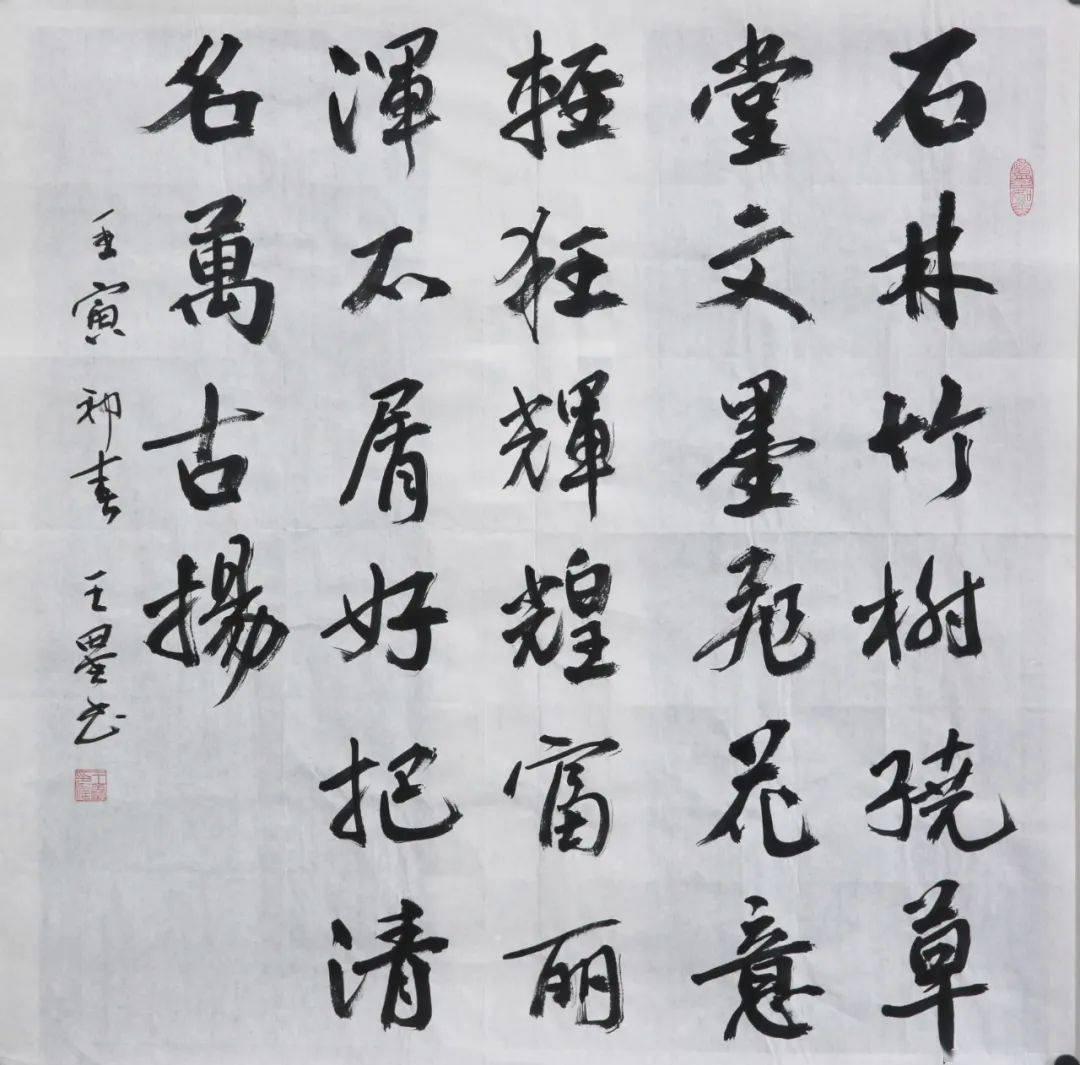 石林竹樹繞草
堂文墨飛花意
輕狂輝煌富丽
渾不屑好把清
名萬古揚
壬寅初春 王墨书